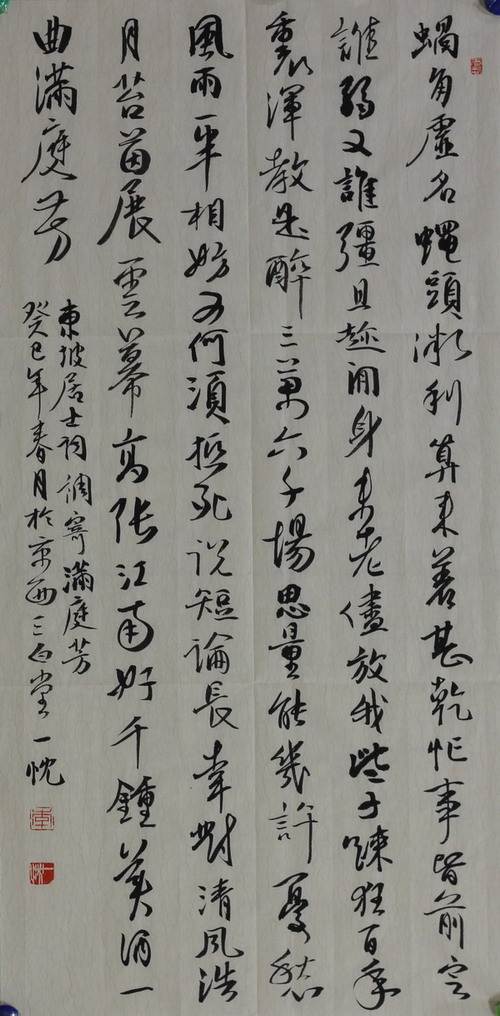 蝸角虛名蠅頭微利算来着甚乾忙事皆前定
誰弱又誰彊且趂閒身未老儘放我些子踈狂百年
裏渾教是醉三萬六千場思量能幾許憂愁
風雨一半相妨又何須抵死说短論長幸對清风浩
月苔茵展雲幕高张江南好千鍾美酒一
曲滿庭芳
東坡居士词調寄滿庭芳
癸巳年春月於京西三白堂一忱